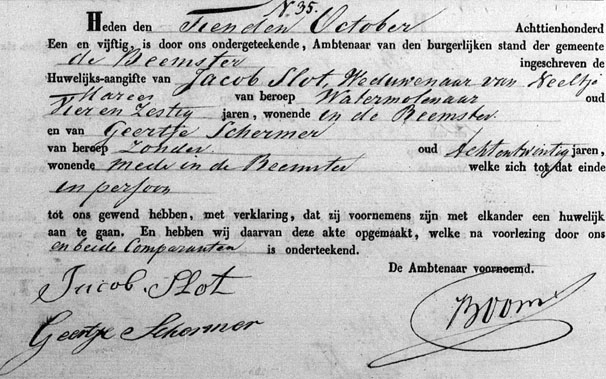 N. 35.
Heden den Tienden October Achttienhonderd
Een en vijftig, is door ons ondergeteekende, Ambtenaar van den burgerlijken stand der gemeente
de Beemster ingeschreven de
Huwelijks-aangifte van Jacob Slot, Weduwenaar van Neeltje
Marees van beroep Watermolenaar oud
Vier en Zestig jaren, wonende in de Beemster
en van Geertje Schermer
van beroep Zonder oud Achtentwintig jaren,
wonende mede in de Beemster welke zich tot dat einde
in persoon
tot ons gewend hebben, met verklaring, dat zij voornemens zijn met elkander een huwelijk
aan te gaan. En hebben wij daarvan deze akte opgemaakt, welke na voorlezing door ons
en beide Comparanten is onderteekend.
De Ambtenaar voornoemd.
Jacob Slot
Boom
Geertje Schermer